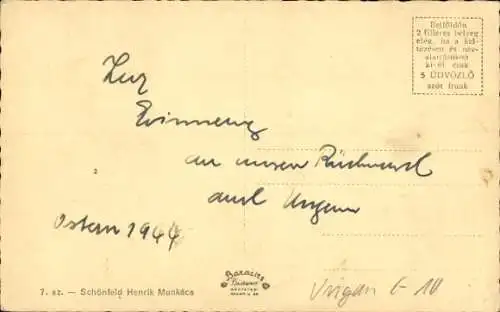 Belföldön
2 filléres bélyeg
elég, ha a kel-
tezésen és név-
aláíráson
kívül csak
5 ÜDVÖZLŐ
szót írunk
Zur
Erinnerung
an unsern Rückmarsch
durch Ungarn
2
Ostern 1944
Barasits
7. sz. — Schönfeld Henrik Munkács
Ungarn 6-10